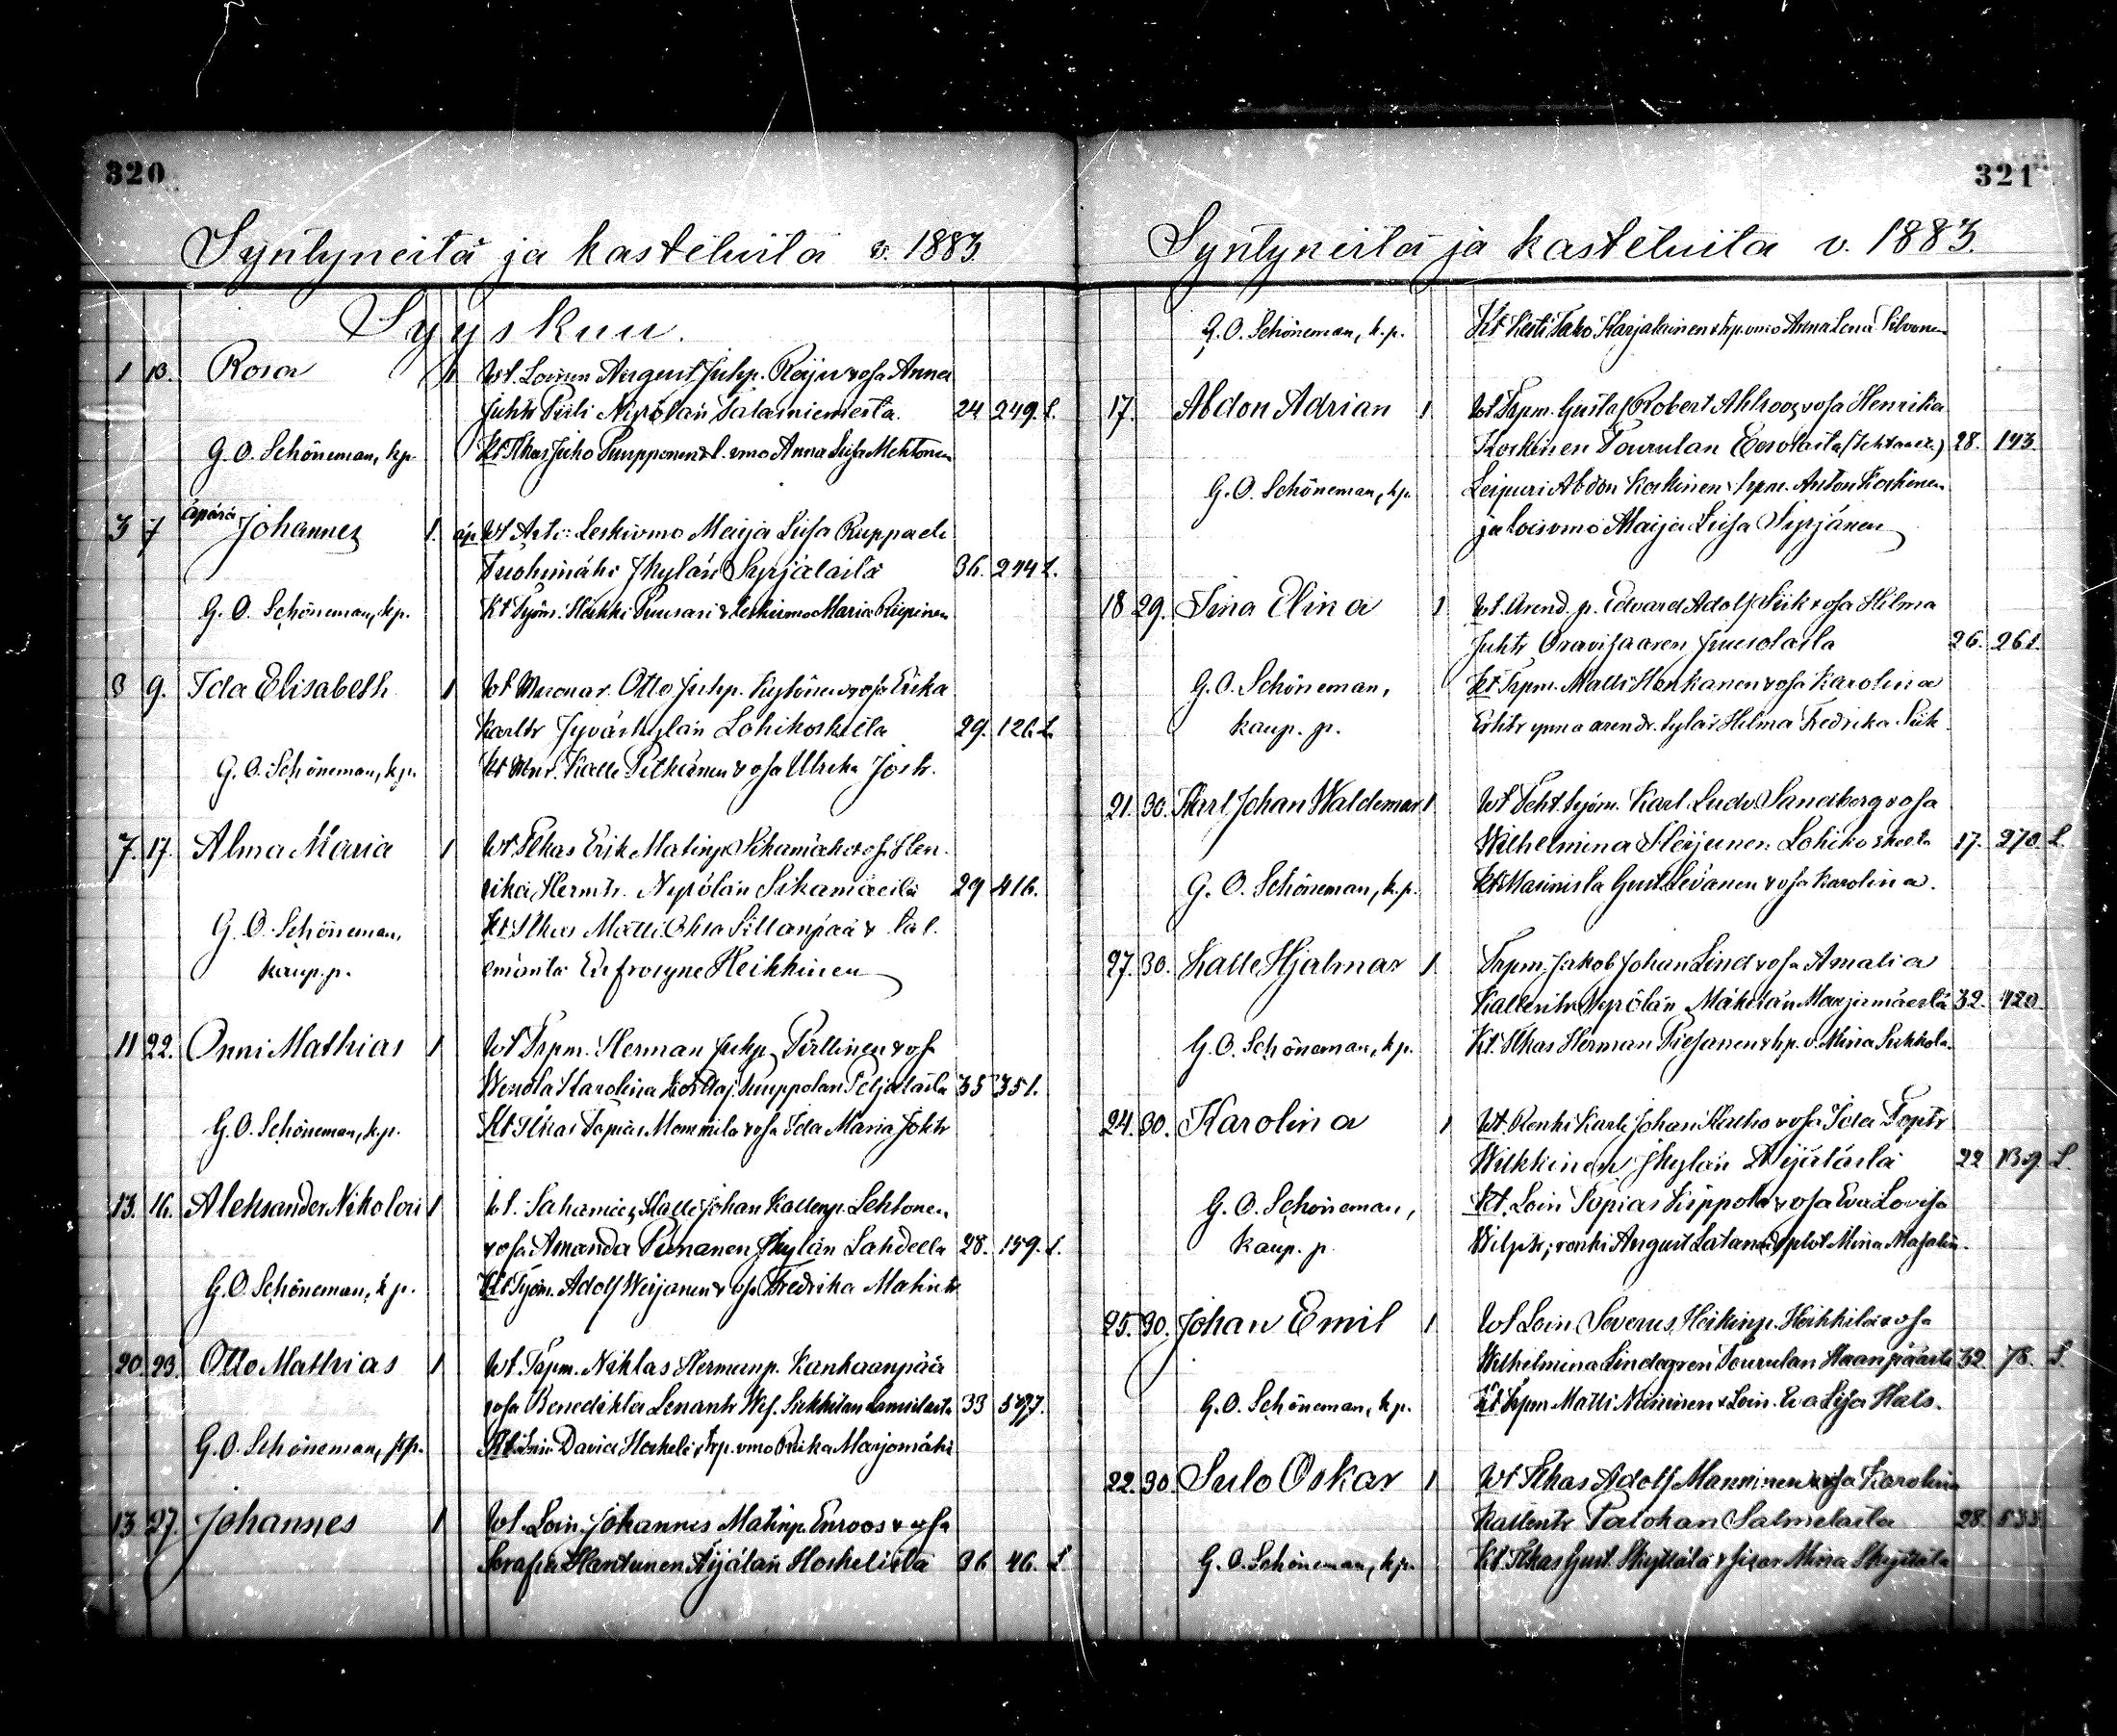 320
Syntyneitä ja kasteluita v. 1883
Syyskuu.
1 13. Rosa 1 Wt. Loinen August Juhp. Reiju & vsa Anna
Juhtr Piili Nyrölän Salaniemestä. 24 249. L.
G. O. Schöneman, kp. Kt Ilkas Juho Pumpponen & l. vmo Anna Liisa Mehtonen
3 7 äpärä Johannes 1. äp. Wt Arti: Leskivmo Maija Liisa Ruppadr
Tuohimäki Jkylän Syrjälailä 36. 244 L.
G. O. Schöneman, kp. Kt Työm. Heikki Puusari & leskivmo Maria Piipinen
3 9. Ida Elisabeth 1 Wt Muronar. Otto Juhp. Kuylönen & vsa Erika
Karltr Jyväskylän Lohikoskella 29. 126. L.
G. O. Schöneman, kp. Kt Mur. Kalle Pitkänen & vsa Ulrika Josh.
7. 17. Alma Maria 1 Wt Ilkas Erik Matinp. Sikamäki & vsa Hen-
rika Hermtr. Nyrölän Sikamäeltä 29 416.
G. O. Schöneman, Kt Ilkas Matti Ohra Sillanpää & tal.
kaup. p. emäntä Eufrosyne Heikkinen
11 22. Onni Mathias 1 Wt Trpm. Herman Juhp. Pirttinen & vsa
Wendla Karolina Puuppolan Peljatasta 35 351.
G. O. Schöneman, kp. Kt Ilkas Topias Mammila & vsa Ida Maria Johtr
13. 16. Aleksander Nikolai 1 Wt. Sahamies Kalle Johan Kallenp. Lehtonen
& vsa Amanda Pienanen Jkylän Lahdella 28. 159. L.
G. O. Schöneman, kp. Kt Työm. Adolf Weijanen & vsa Fredrika Matintr
20 23. Otto Mathias 1 Wt. Trpm. Niklas Hermanp. Kankaanpää
vsa Benedikta Lenantr Wes. 33 597.
G. O. Schöneman, kp. Kt Loin. David Hoskeli & trp. vmo Priika Marjomäki
13 27. Johannes 1 Wt. Loin. Johannes Matinp. Enroos & vsa
Serafia Hantunen Äijälän Hoskelista 36 46. L.
321
Syntyneitä ja kasteluita v. 1883.
G. O. Schöneman, k.p. Kt Kesti Tahvo Karjalainen & trp. vmo Anna Lena Silvonen
17. Abdon Adrian 1 Wt Trpm. Gustaf Robert Ahlroos & vsa Henrika
Koskinen Tourulan Eerolasta (Tehtaalt.) 28. 143.
G. O. Schöneman, kp. Leipuri Abdon Koskinen, trpm. Anton Koskinen
ja loisvmo Maija Liisa Syrjänen
18 29. Sina Elina 1 Wt. Arend. p. Edvard Adolf Siik & vsa Hilma
Juhtr Oravisaaren Juusolasta 26. 261.
G. O. Schöneman, Kt Trpm. Matti Honkanen & vsa Karolina
kaup. p. Erktr ynnä arendr. tytär Hilma Fredrika Siik
21. 30. Karl Johan Waldemar 1 Wt Teht. työm. Karl Ludv. Sandberg & vsa
Wilhelmina Heijunen Lohikoskelta 17. 270 L.
G. O. Schöneman, k.p. Kt Masinista Gust. Levänen & vsa Karolina.
27. 30. Kalle Hjalmar 1 Trpm. Jakob Johan Lind & vsa Amalia
Kallentr Nyrölän Mäkelän Marjamäestä 32. 420
G. O. Schöneman, kp. Kt. Ilkas Herman Piesanen & trp. v. Mina Sukkola.
24. 30. Karolina 1 Wt. Renki Karl Johan Kalho & vsa Ida Toptr
Wilkkinen Jkylän Äijälästä 22 139 L.
G. O. Schöneman, Kt. Loin Topias Kuppola & vsa Eva Lovisa
kaup. p. Wilptr; renki August Satanen & plvt Mina Masalin.
25. 30. Johan Emil 1 Wt Loin Severus Heikinp. Heikkilä & vsa
Wilhelmina Lindegren Tourulan Haanpäästä 32 78. L.
G. O. Schöneman, kp. Kt Trpm Matti Nieminen & Loin. Eva Lisa Hals.
22. 30. Sulo Oskar 1 Wt Ilkas Adolf Manninen & vsa Karolina
Kallentr Palokan Salmelasta 28. 533
G. O. Schöneman, kp. Kt Ilkas Gust. Skyttälä & sisar Mina Skyttälä